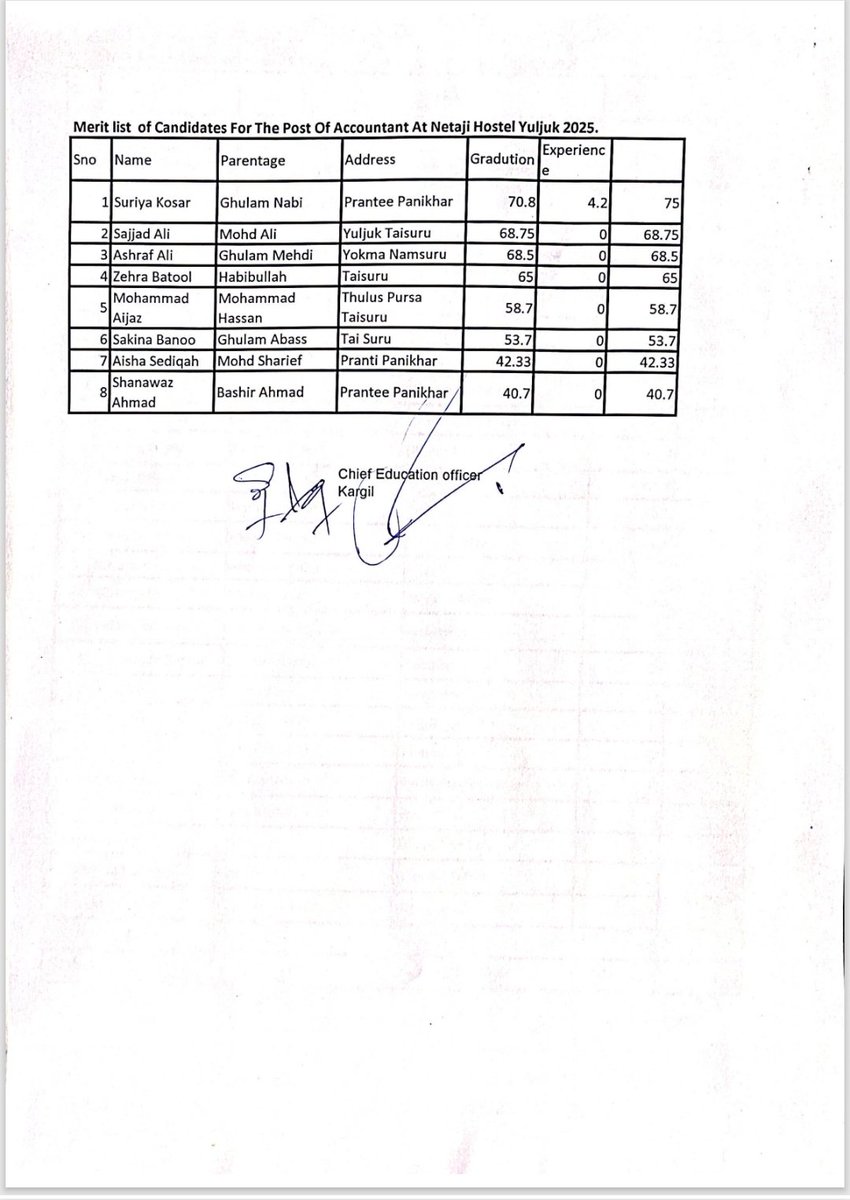 Merit list of Candidates For The Post Of Accountant At Netaji Hostel Yuljuk 2025.
Sno Name Parentage Address Gradution Experienc
e
1 Suriya Kosar Ghulam Nabi Prantee Panikhar 70.8 4.2 75
2 Sajjad Ali Mohd Ali Yuljuk Taisuru 68.75 0 68.75
3 Ashraf Ali Ghulam Mehdi Yokma Namsuru 68.5 0 68.5
4 Zehra Batool Habibullah Taisuru 65 0 65
5 Mohammad Mohammad Thulus Pursa 58.7 0 58.7
Aijaz Hassan Taisuru
6 Sakina Banoo Ghulam Abass Tai Suru 53.7 0 53.7
7 Aisha Sediqah Mohd Sharief Pranti Panikhar 42.33 0 42.33
8 Shanawaz Bashir Ahmad Prantee Panikhar 40.7 0 40.7
Ahmad
Chief Education officer
Kargil